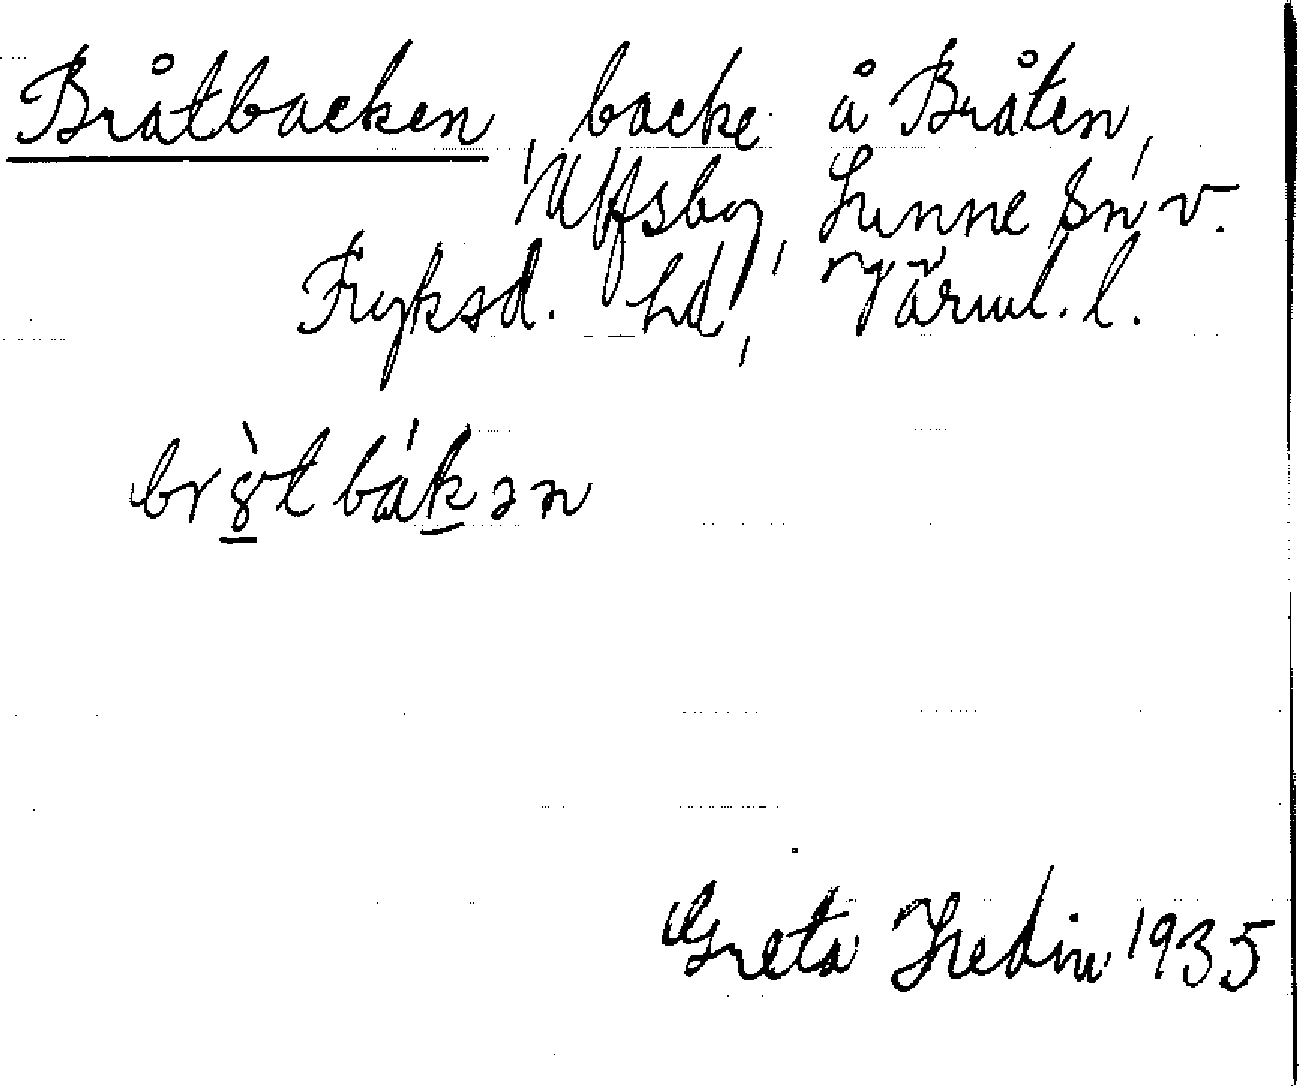 Bråtbacken, backe å Bråten,
Ulfsby, Sunne sn, v.
Fryksd. hd, Värml. l.
br8̀tbákən
Greta Hedin 1935